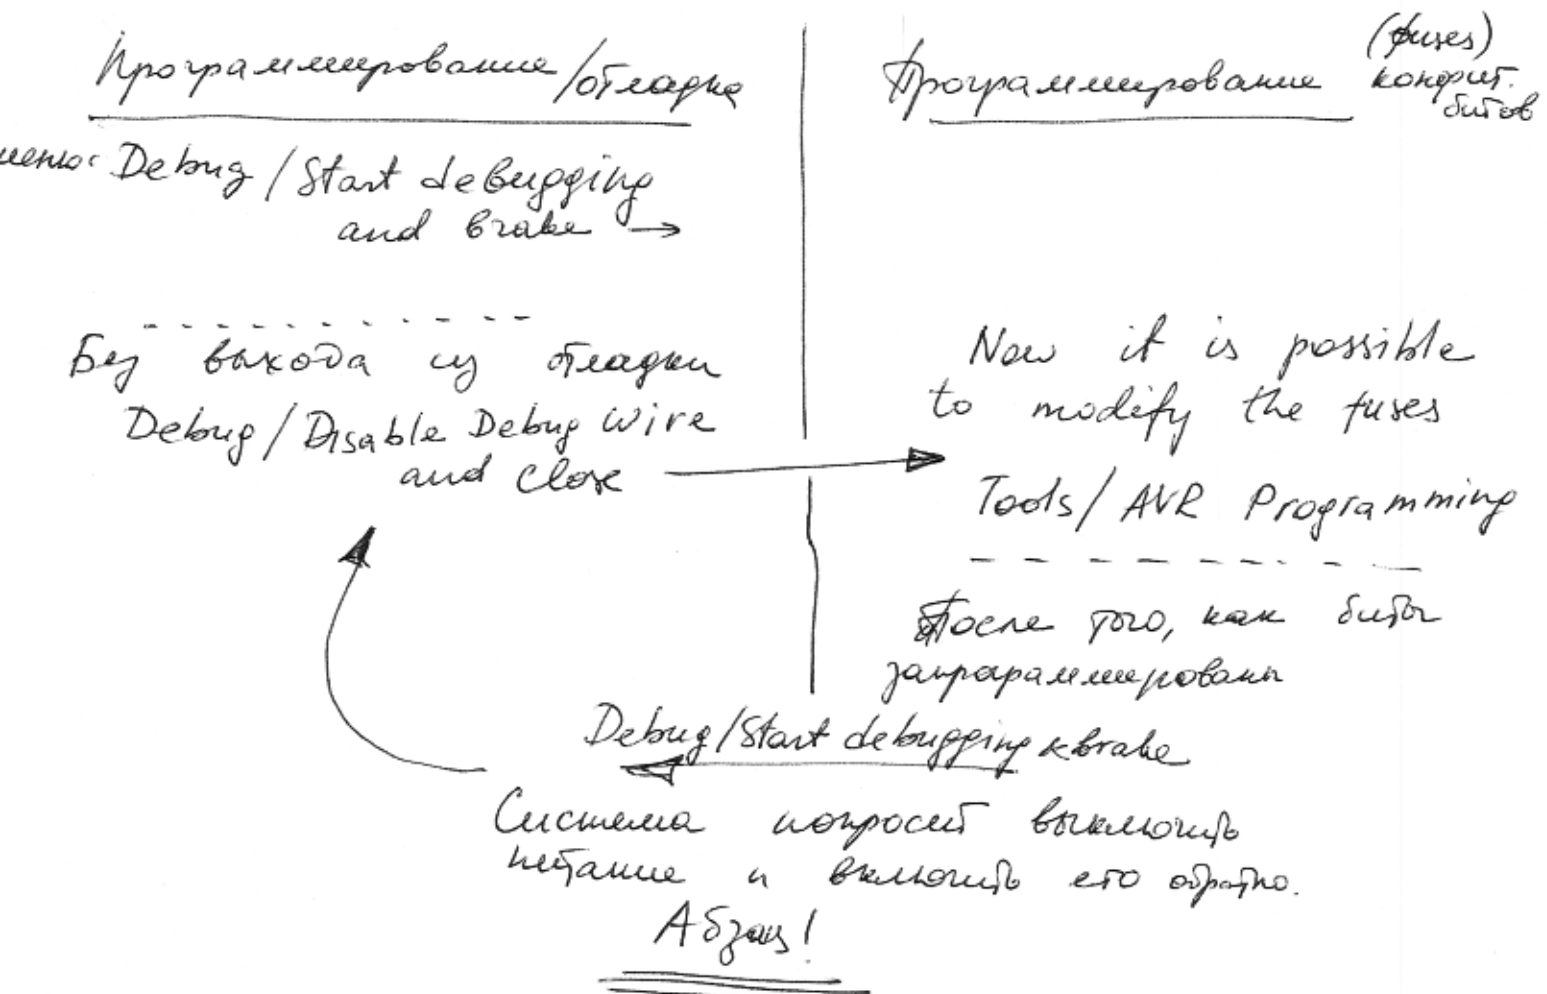 Программирование/отладка
меню: Debug / Start debugging
and brake →
Без выхода из отладки
Debug / Disable Debug Wire
and Close
Программирование (fuses)
конфиг.
битов
Now it is possible
to modify the fuses
Tools / AVR Programming
После того, как биты
запрограммированы
Debug / Start debugging & brake
Система попросит выключить
питание и включить его обратно.
Абзац!